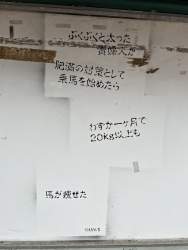 ぶくぶくと太った
貴婦人が
肥満の対策として
乗馬を始めたら
わずか一ヶ月で
20kg以上も
馬が痩せた